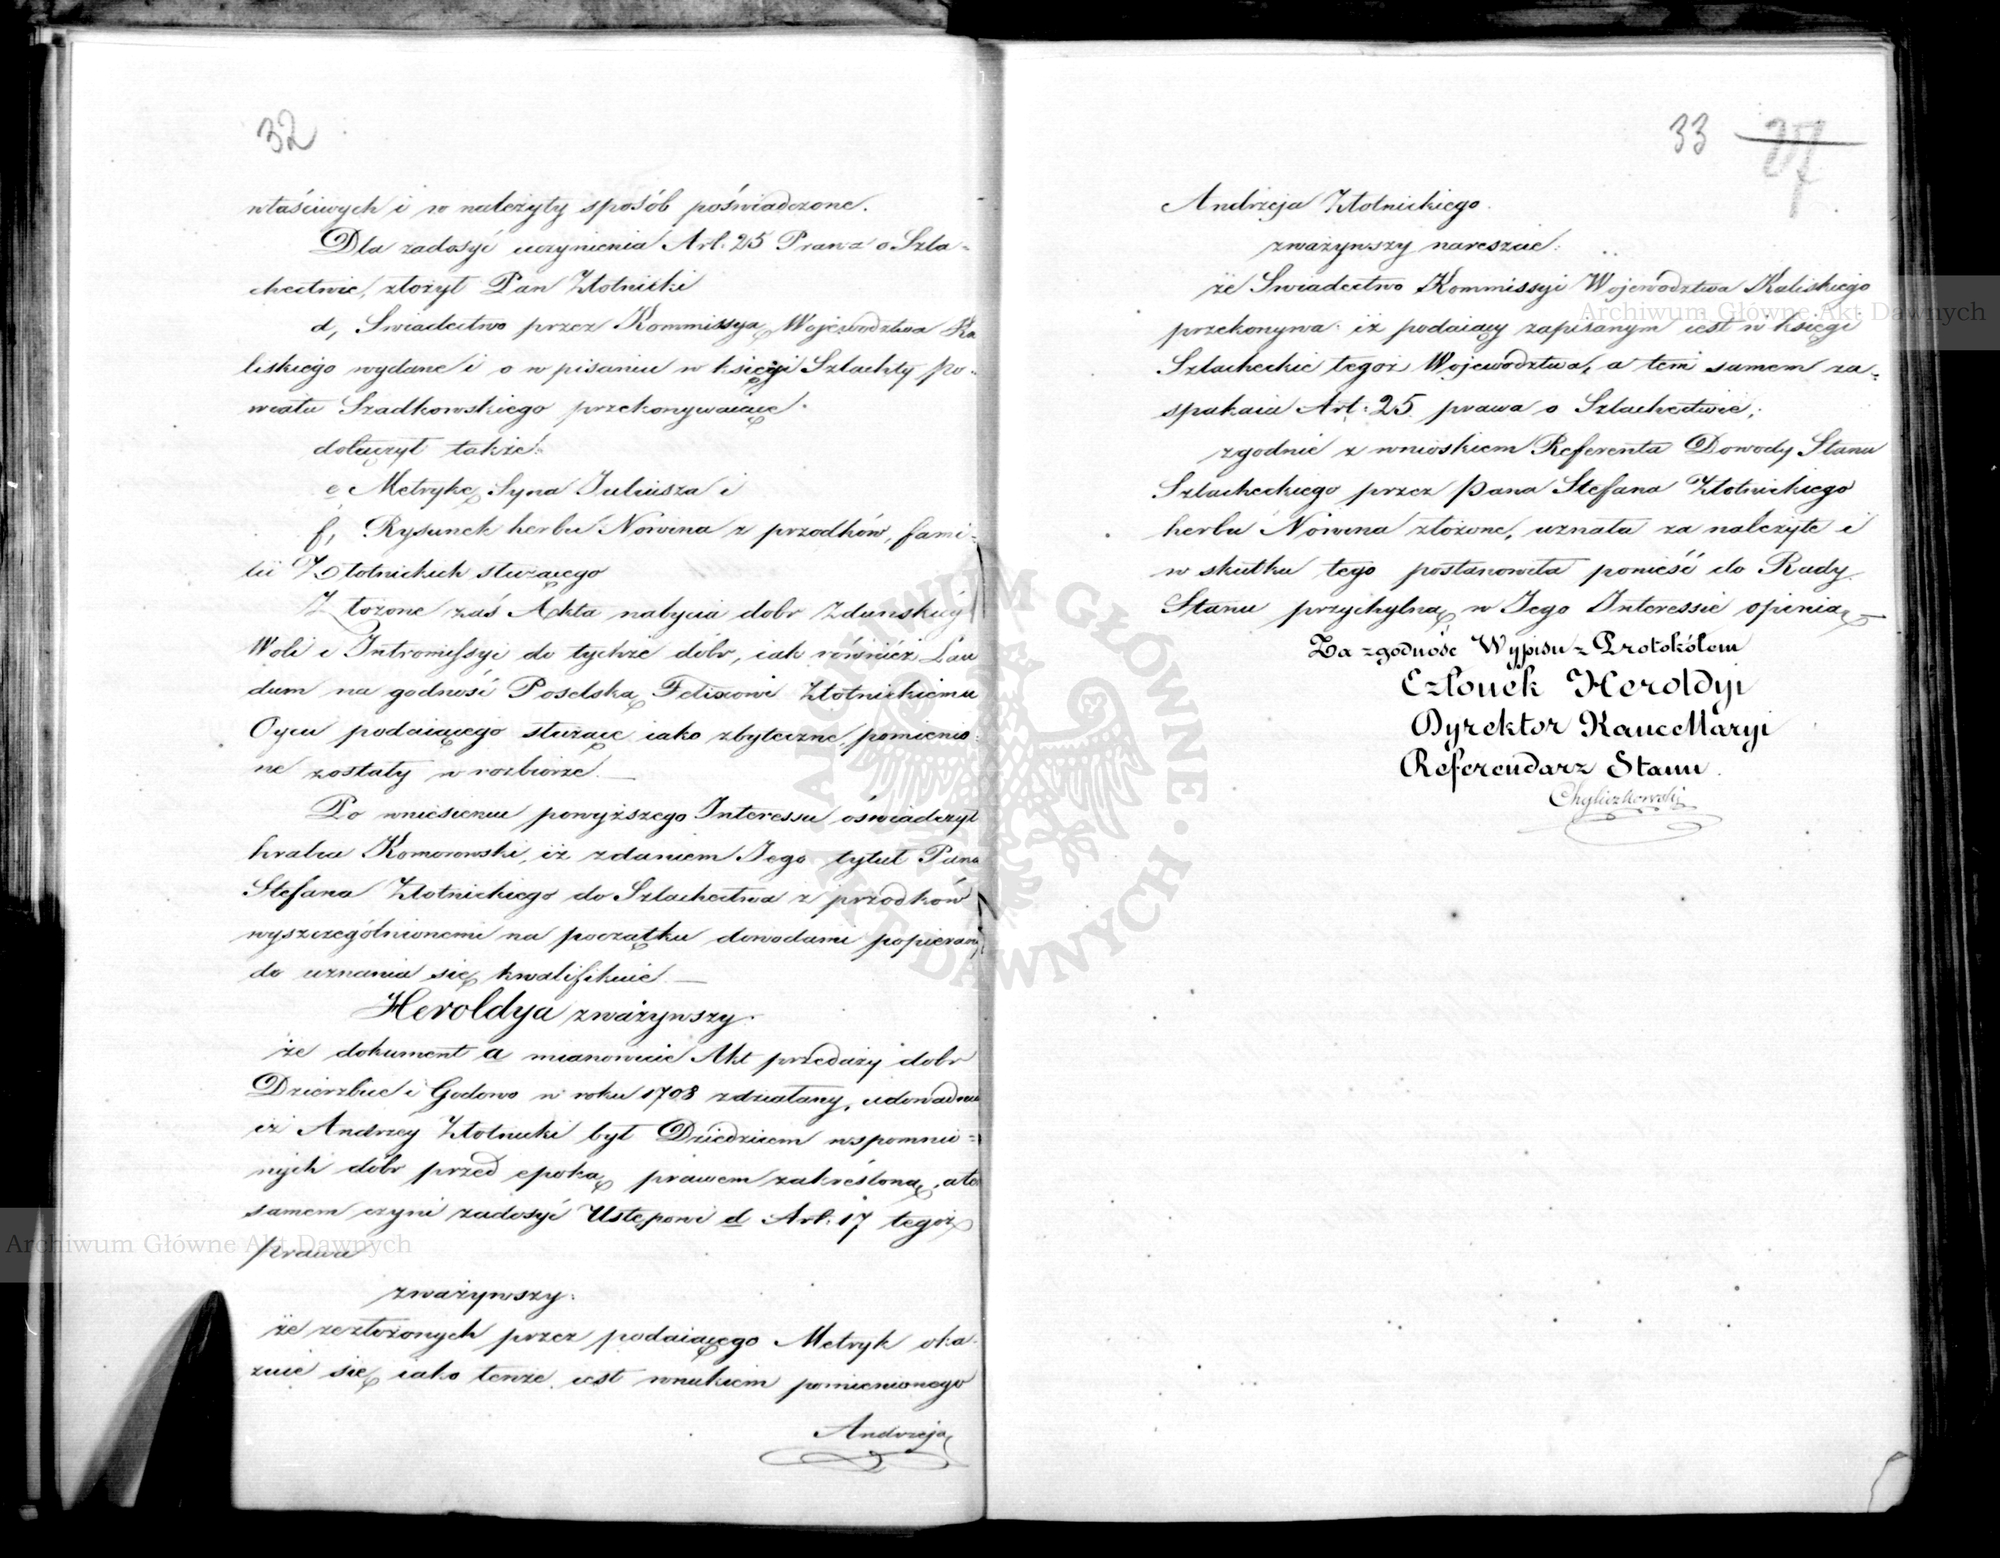 32
właściwych i w należyty sposób poświadczone.
Dla zadosyć uczynienia Art: 25 Prawa o Szla-
chectwie, złożył Pan Złotnicki
d, Swiadectwo przez Kommissyą Wojewodztwa Ka
liskiego wydane i o w pisaniu w księgi Szlachty po-
wiatu Szadkowskiego przekonywaiące.
dołączył także:
e Metrykę Syna Juliusza i
f, Rysunek herbu Nowina z przodków, fami-
lii Złotnickich służącego
Złożone zaś Akta nabycia dobr Zdunskiéy
Woli i Intromissyi do tychże dóbr, iak również Lau
dum na godność Poselską Felixowi Złotnickiemu
Oycu podaiącego służące iako zbyteczne pomienio-
ne zostały w rozbiorze.—
Po wniesieniu powyższego Interessu oświadczył
hrabia Komorowski, iż zdaniem Jego tytuł Pana
Stefana Złotnickiego do Szlachectwa z przodków
wyszczególnionemi na początku dowodami popierany
do uznania się kwalifikuie.—
Heroldya zważywszy.
że dokument a mianowicie Akt przedaży dobr
Dzierzbice i Godowo w roku 1708 zdziałany, udowadnia
iż Andrzey Złotnicki był Dziedzicem wspomnio-
nych dóbr przed epoką prawem zakreśloną, a tem
samem czyni zadosyć Ustępowi d Art: 17 tegoż
Prawa
zważywszy:
że ze złożonych przez podaiącego Metryk oka-
zuie się, iako tenże iest wnukiem pomienionego
Andrzeja
33 27
Andrzeja Złotnickiego.
zważywszy nareszcie:
że Swiadectwo Kommissyi Wojewodztwa Kaliskiego
przekonywa: iż podaiący zapisanym iest w księgi
Szlacheckie tegoż Wojewodztwa, a tem samem za-
spakaia Art: 25 prawa o Szlachectwie;
zgodnie z wnioskiem Referenta Dowody Stanu
Szlacheckiego przez Pana Stefana Złotnickiego
herbu Nowina złożone, uznała za należyte i
w skutku tego postanowiła ponieść do Rady
Stanu przychylną w Jego Interessie opinią—
Za zgodność Wypisu z Protokółem
Członek Heroldyi
Dyrektor Kancellaryi
Referendarz Stanu.
Chyliczkowski
Archiwum Główne Akt Dawnych
Archiwum Główne Akt Dawnych
ARCHIWUM GŁÓWNE AKT DAWNYCH